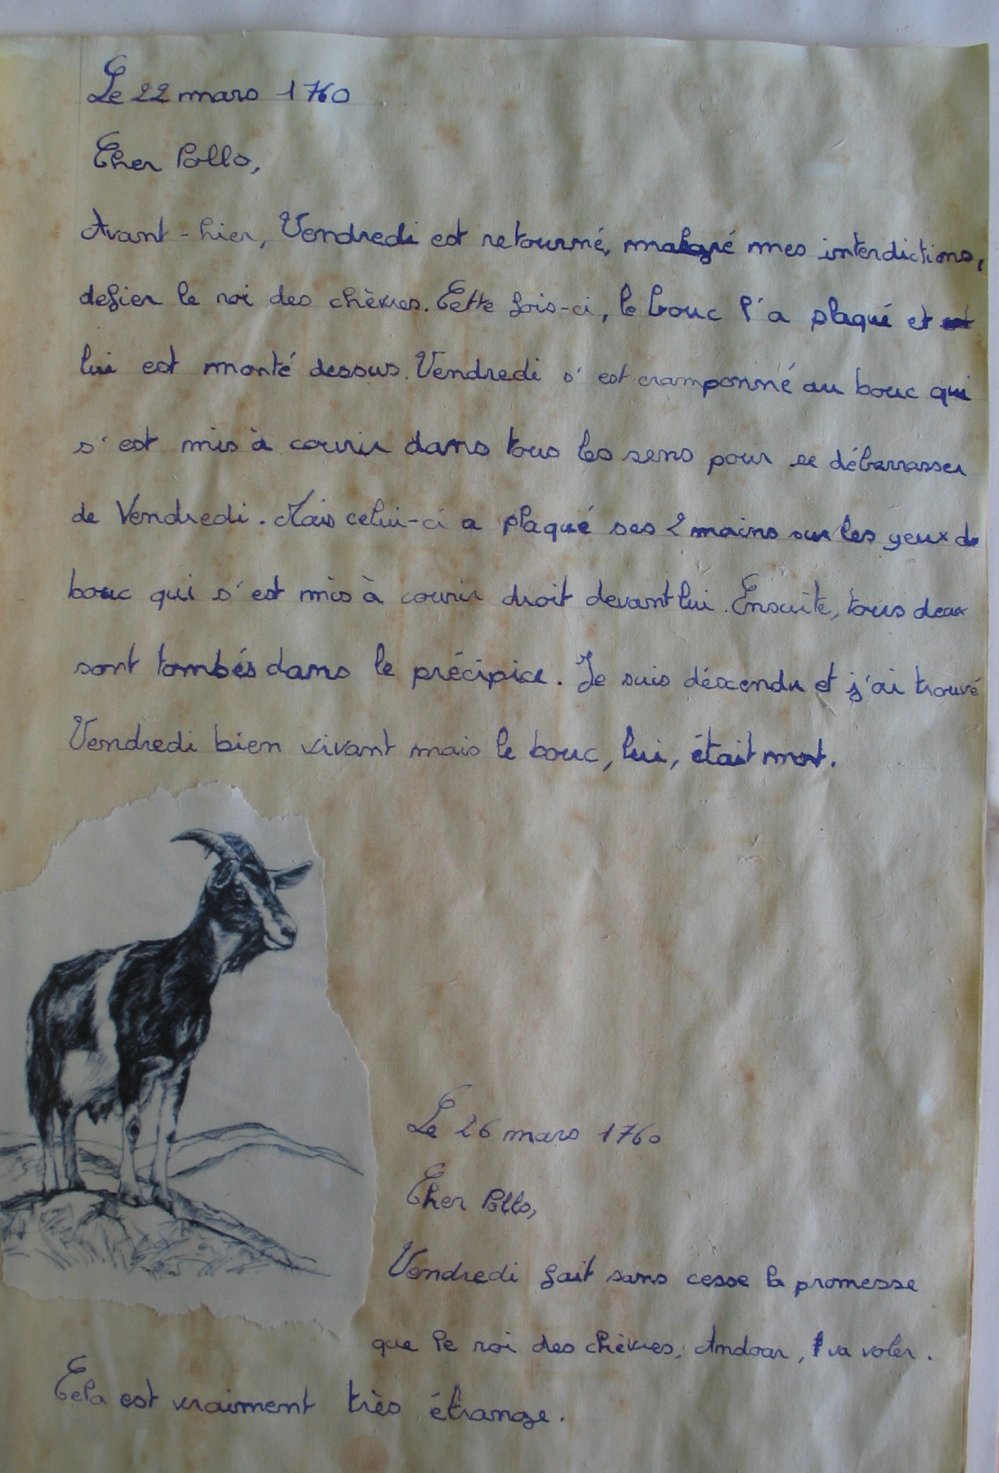 Le 22 mars 1760
Cher Pollo,
Avant-hier, Vendredi est retourné, malgré mes interdictions,
défier le roi des chèvres. Cette fois-ci, le bouc l'a plaqué et
lui est monté dessus. Vendredi s'est cramponné au bouc qui
s'est mis à courir dans tous les sens pour se débarrasser
de Vendredi. Mais celui-ci a plaqué ses 2 mains sur les yeux de
bouc qui s'est mis à courir droit devant lui. Ensuite, tous deux
sont tombés dans le précipice. Je suis déscendu et j'ai trouvé
Vendredi bien vivant mais le bouc, lui, était mort.
Le 26 mars 1760
Cher Pollo,
Vendredi fait sans cesse la promesse
que le roi des chèvres, Andoar, va voler.
Cela est vraiment très étrange.